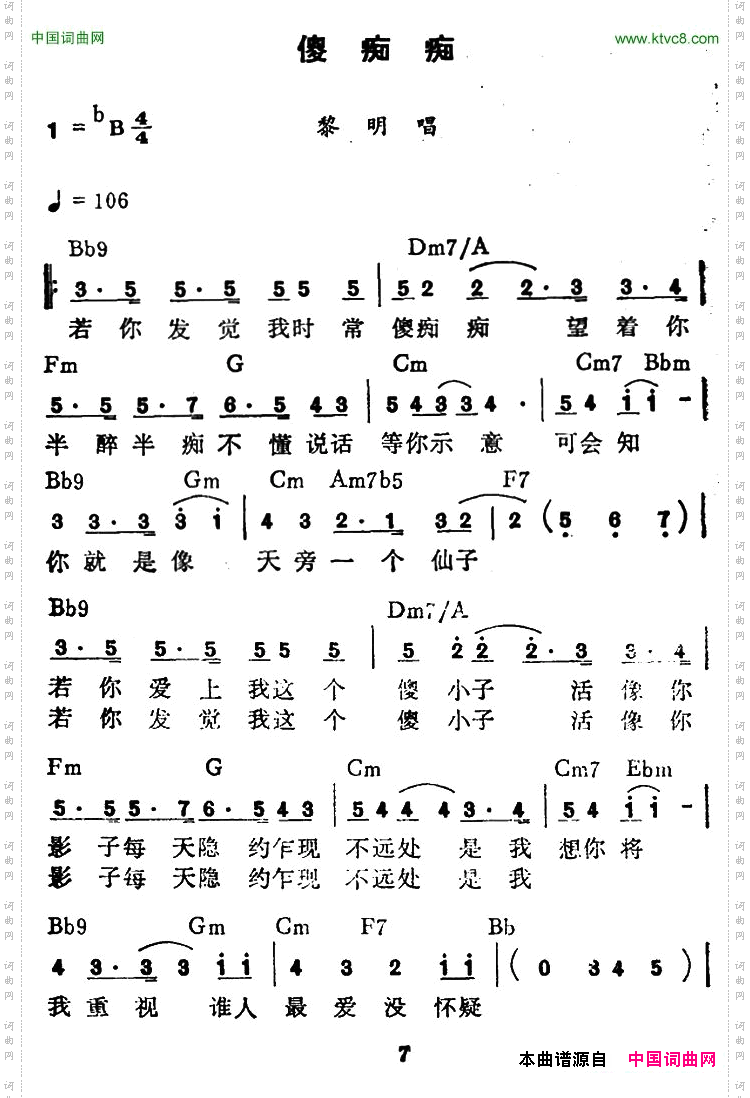 中国词曲网 傻痴痴 www.ktvc8.com
1 = bB 4/4 黎明唱
♩ = 106
Bb9 Dm7/A
3· 5 5· 5 5 5 5 | 5 2 2 2· 3 3· 4 |
若你发觉我时常傻痴痴 望着你
Fm G Cm Cm7 Bbm
5· 5 5· 7 6· 5 4 3 | 5 4 3 3 4 · | 5 4 i i - |
半醉半痴不懂说话 等你示意 可会知
Bb9 Gm Cm Am7b5 F7
3 3· 3 3 i | 4 3 2· 1 3 2 | 2 ( 5 6 7 ) |
你就是像 天旁一个仙子
Bb9 Dm7/A
3· 5 5· 5 5 5 5 | 5 2 2 2· 3 3· 4 |
若你爱上我这个 傻小子 活像你
若你发觉我这个 傻小子 活像你
Fm G Cm Cm7 Ebm
5· 5 5· 7 6· 5 4 3 | 5 4 4 4 3· 4 | 5 4 i i - |
影子每天隐约乍现 不远处 是我 想你将
影子每天隐约乍现 不远处 是我
Bb9 Gm Cm F7 Bb
4 3· 3 3 i i | 4 3 2 i i | ( 0 3 4 5 ) |
我重视 谁人最爱没怀疑
7 本曲谱源自 中国词曲网
词曲网